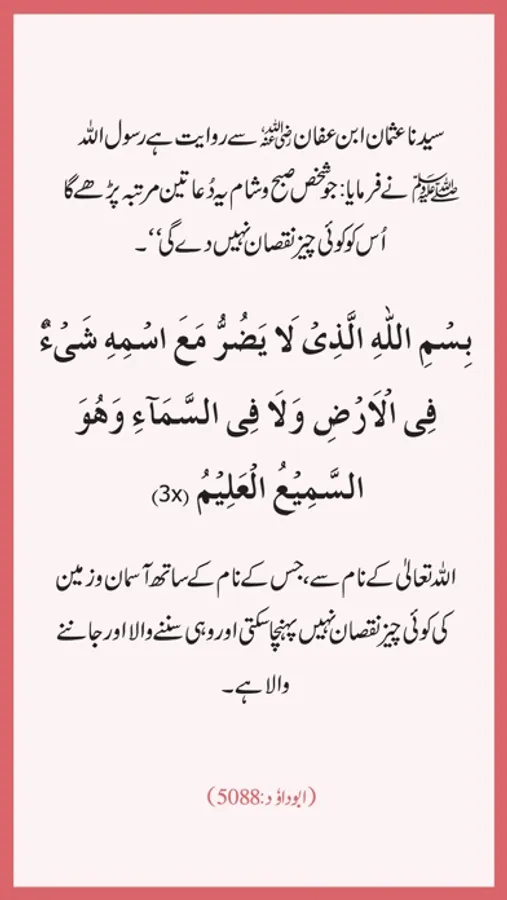 سیدنا عثمان ابن عفان رضی اللہ عنہ سے روایت ہے رسول اللہ
ﷺ نے فرمایا: جو شخص صبح و شام یہ دُعا تین مرتبہ پڑھے گا
اُس کو کوئی چیز نقصان نہیں دے گی‘‘۔
بِسْمِ اللهِ الَّذِیْ لَا یَضُرُّ مَعَ اسْمِهِ شَیْءٌ
فِی الْاَرْضِ وَلَا فِی السَّمَآءِ وَهُوَ
السَّمِیْعُ الْعَلِیْمُ (3x)
اللہ تعالیٰ کے نام سے، جس کے نام کے ساتھ آسمان و زمین
کی کوئی چیز نقصان نہیں پہنچا سکتی اور وہی سننے والا اور جاننے
والا ہے۔
(ابوداؤد:5088)